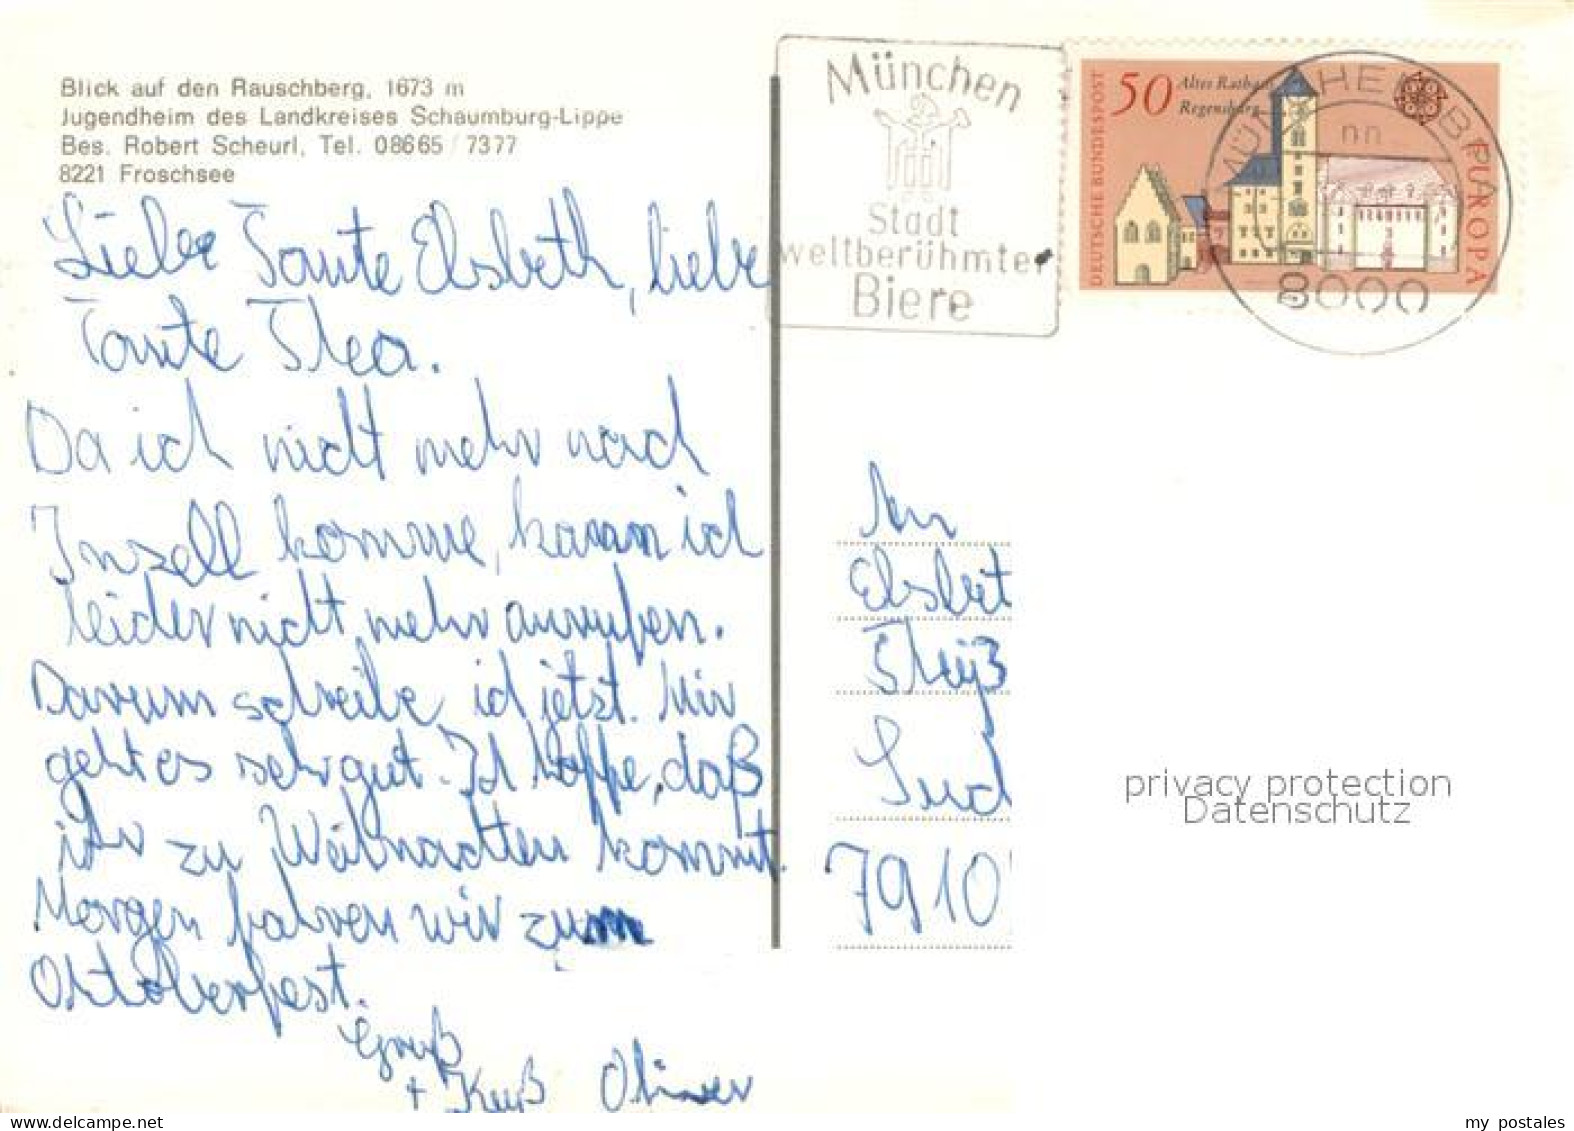 Blick auf den Rauschberg, 1673 m
Jugendheim des Landkreises Schaumburg-Lippe
Bes. Robert Scheurl, Tel. 08665 / 7377
8221 Froschsee
Liebe Tante Elsbeth, liebe
Tante Thea.
Da ich nicht mehr nach
Inzell komme, kann ich
leider nicht mehr anrufen.
Darum schreibe ich jetzt. Mir
geht es sehr gut. Ich hoffe, daß
ihr zu Weihnachten kommt.
Morgen fahren wir zum
Oktoberfest.
Gruß
+ Kuß Oliver
München
Stadt
weltberühmter
Biere
DEUTSCHE BUNDESPOST
50
Altes Rathaus
Regensburg
EUROPA
8000
An
Elsbet
7910
privacy protection
Datenschutz
www.delcampe.net
my postales